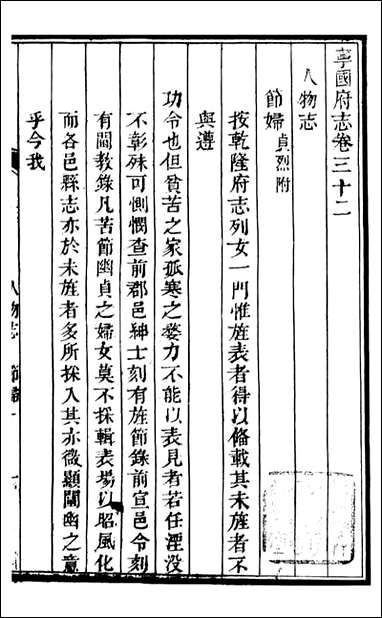 寧國府志卷三十二
人物志
節婦貞烈附
按乾隆府志列女一門惟旌表者得以俻載其未旌者不
與遵
功令也但貧苦之家孤寒之嫠力不能以表見者若任湮没
不彰殊可惻憫查前郡邑紳士刻有旌節錄前宣邑令刻
有闔教錄凡苦節幽貞之婦女莫不採輯表揚以昭風化
而各邑縣志亦於未旌者多所採入其亦微顯闡幽之意
乎今我
人物志